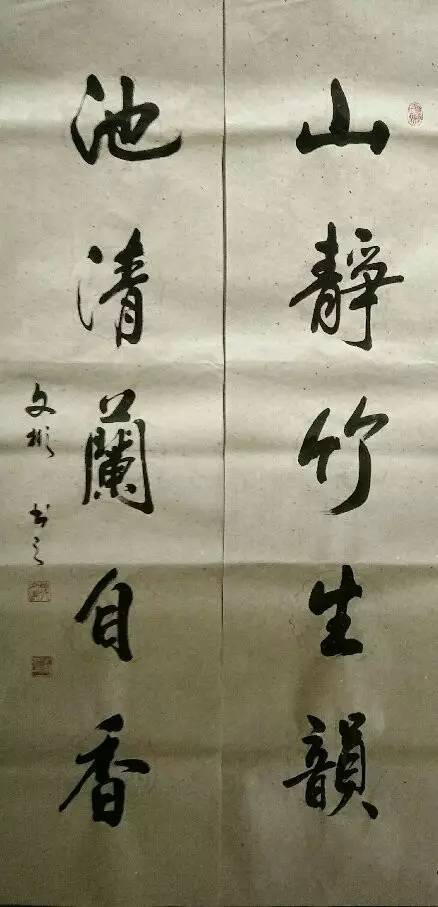 山靜竹生韻
池清蘭自香
文彬 书之